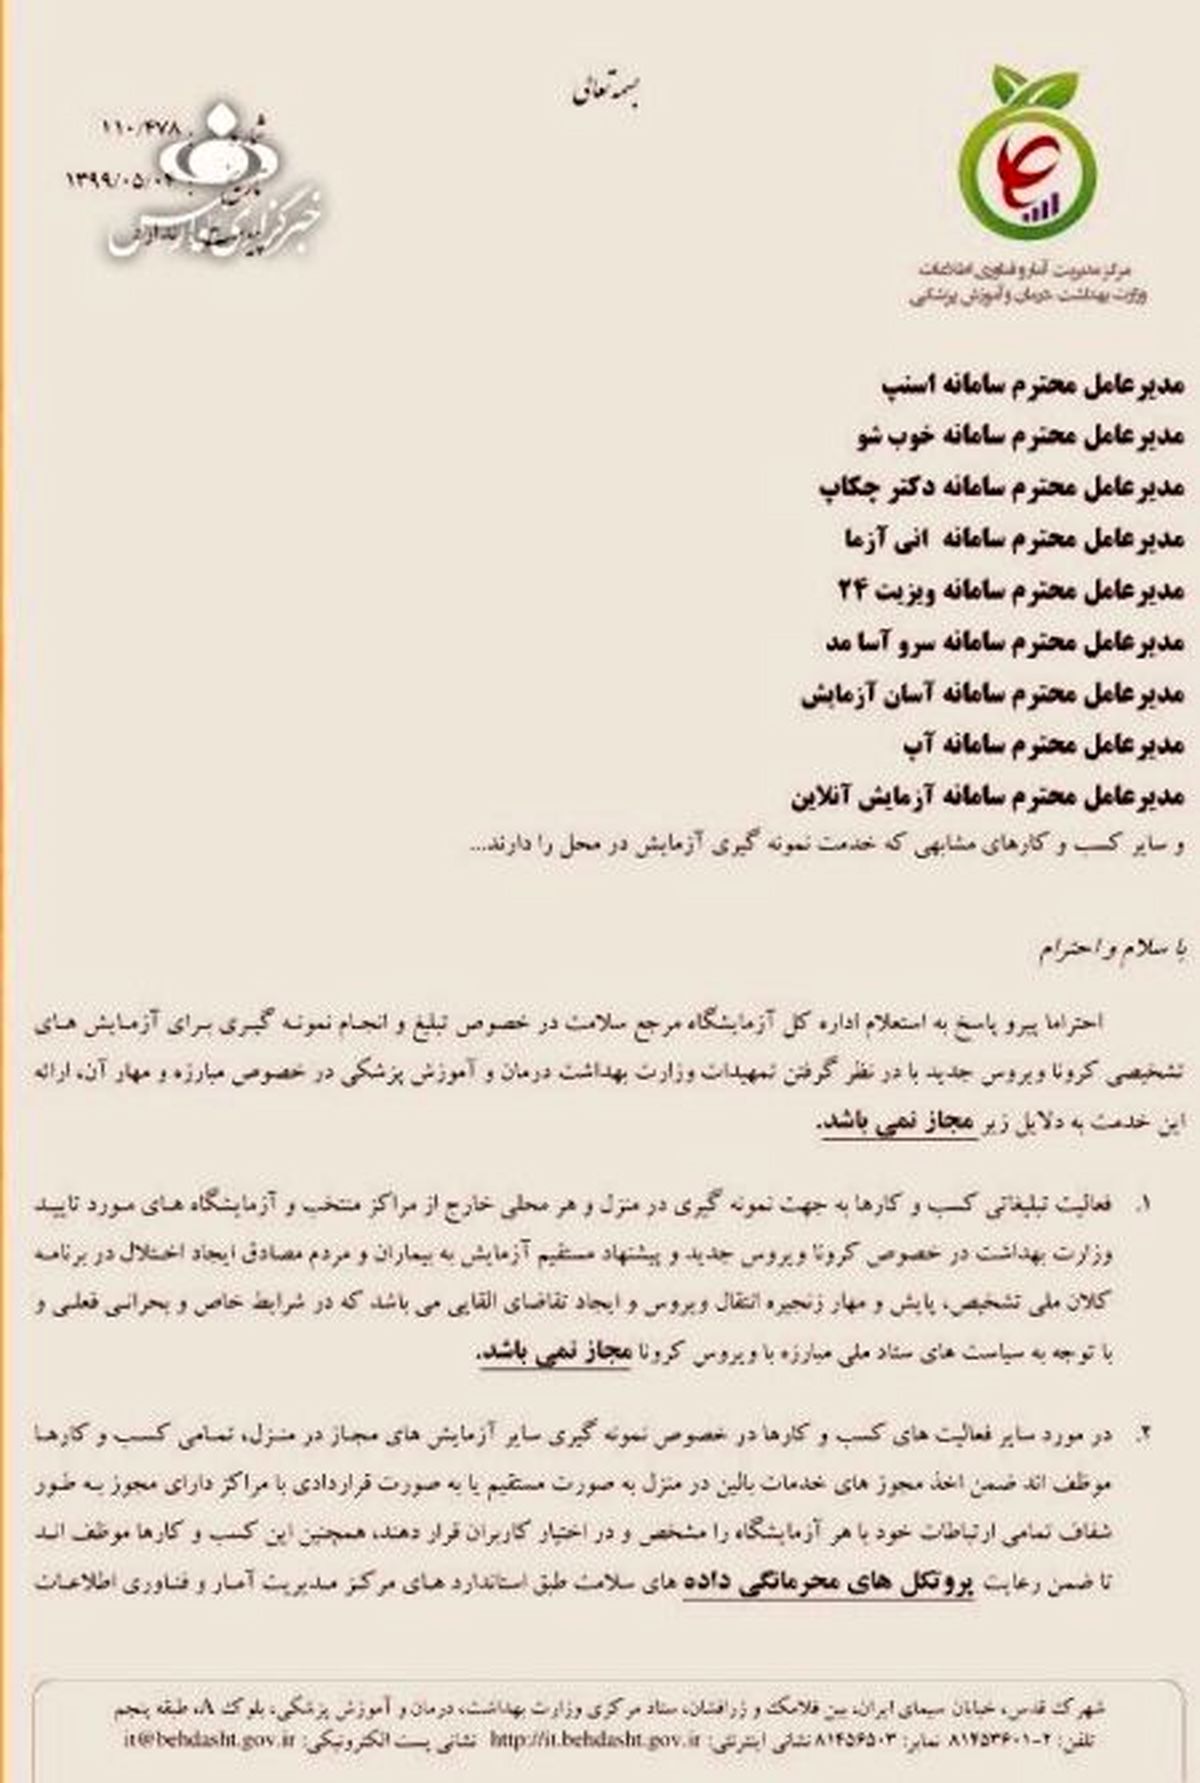 بسمه تعالی
۱۱۰/۴۷۸
۱۳۹۹/۰۵/۰۴
خبرگزاری فارس
مرکز مدیریت آمار و فناوری اطلاعات
وزارت بهداشت، درمان و آموزش پزشکی
مدیرعامل محترم سامانه اسنپ
مدیرعامل محترم سامانه خوب شو
مدیرعامل محترم سامانه دکتر چکاپ
مدیرعامل محترم سامانه انی آزما
مدیرعامل محترم سامانه ویزیت ۲۴
مدیرعامل محترم سامانه سرو آسا مد
مدیرعامل محترم سامانه آسان آزمایش
مدیرعامل محترم سامانه آپ
مدیرعامل محترم سامانه آزمایش آنلاین
و سایر کسب و کارهای مشابهی که خدمت نمونه گیری آزمایش در محل را دارند...
با سلام و احترام
احتراما پیرو پاسخ به استعلام اداره کل آزمایشگاه مرجع سلامت در خصوص تبلیغ و انجام نمونه گیری برای آزمایش های
تشخیصی کرونا ویروس جدید با در نظر گرفتن تمهیدات وزارت بهداشت درمان و آموزش پزشکی در خصوص مبارزه و مهار آن، ارائه
این خدمت به دلایل زیر مجاز نمی باشد.
۱. فعالیت تبلیغاتی کسب و کارها به جهت نمونه گیری در منزل و هر محلی خارج از مراکز منتخب و آزمایشگاه های مورد تایید
وزارت بهداشت در خصوص کرونا ویروس جدید و پیشنهاد مستقیم آزمایش به بیماران و مردم مصادق ایجاد اختلال در برنامه
کلان ملی تشخیص، پایش و مهار زنجیره انتقال ویروس و ایجاد تقاضای القایی می باشد که در شرایط خاص و بحرانی فعلی و
با توجه به سیاست های ستاد ملی مبارزه با ویروس کرونا مجاز نمی باشد.
۲. در مورد سایر فعالیت های کسب و کارها در خصوص نمونه گیری سایر آزمایش های مجاز در منزل، تمامی کسب و کارها
موظف اند ضمن اخذ مجوز های خدمات بالین در منزل به صورت مستقیم یا به صورت قراردادی با مراکز دارای مجوز به طور
شفاف تمامی ارتباطات خود با هر آزمایشگاه را مشخص و در اختیار کاربران قرار دهند، همچنین این کسب و کارها موظف اند
تا ضمن رعایت پروتکل های محرمانگی داده های سلامت طبق استاندارد های مرکز مدیریت آمار و فناوری اطلاعات
شهرک قدس، خیابان سیمای ایران، بین فلامک و زرافشان، ستاد مرکزی وزارت بهداشت، درمان و آموزش پزشکی، بلوک A، طبقه پنجم
تلفن: ۲-۸۱۴۵۳۶۰۱ نمابر: ۸۱۴۵۶۵۰۳ نشانی اینترنتی: http://it.behdasht.gov.ir نشانی پست الکترونیکی: it@behdasht.gov.ir